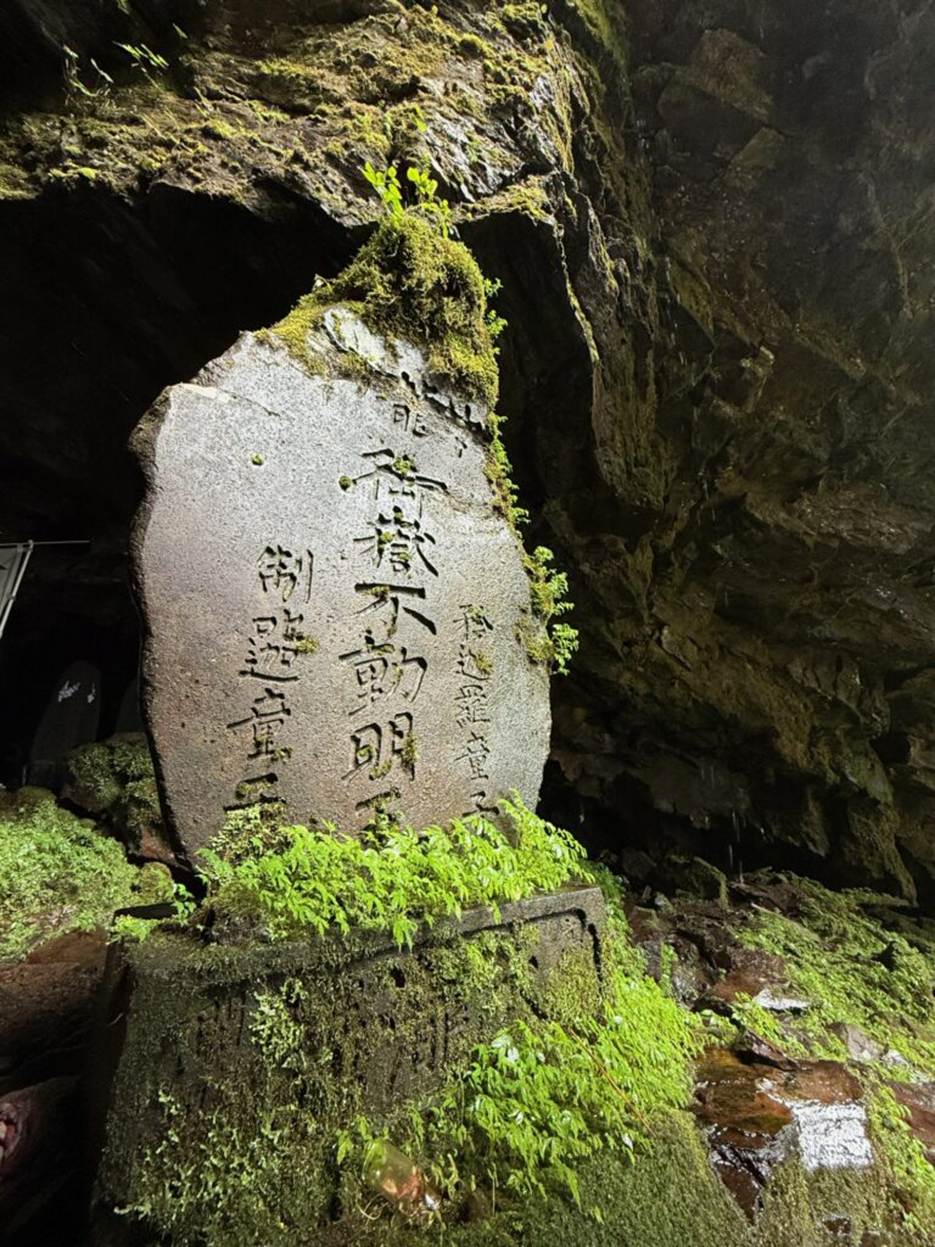 矜迦羅童子
御嶽不動明王
制吒迦童子